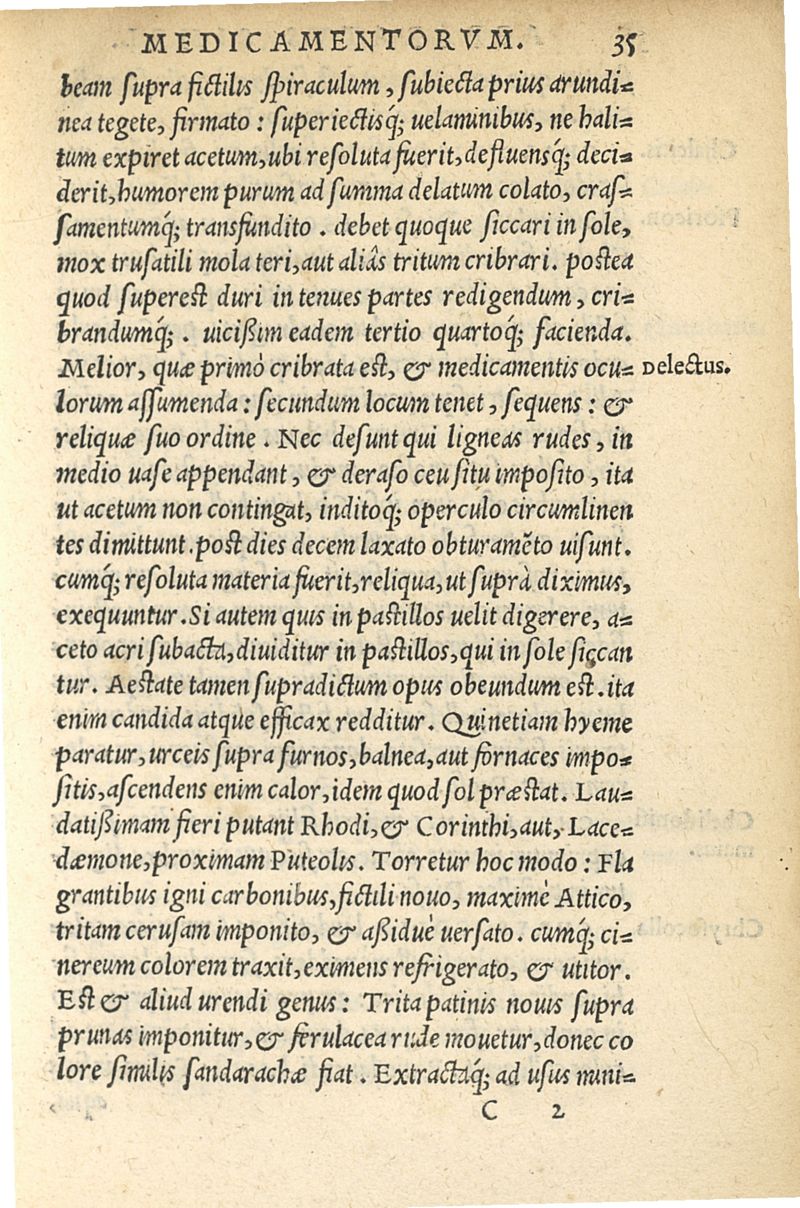 MEDICAMENTORVM. 35
beam supra fictilis spiraculum, subiecta prius arundi=
nea tegete, firmato: superiectisq́; uelaminibus, ne hali=
tum expiret acetum, ubi resoluta fuerit, defluensq́; deci=
derit, humorem purum ad summa delatum colato, cras=
samentumq́; transfundito. debet quoque siccari in sole,
mox trusatili mola teri, aut aliâs tritum cribrari. postea
quod superest duri in tenues partes redigendum, cri=
brandumq́;. uicißim eadem tertio quartoq́; facienda.
Melior, quæ primò cribrata est, & medicamentis ocu= Delectus.
lorum assumenda: secundum locum tenet, sequens: &
reliquæ suo ordine. Nec desunt qui ligneas rudes, in
medio uase appendant, & deraso ceu situ imposito, ita
ut acetum non contingat, inditoq́; operculo circumlinen
tes dimittunt. post dies decem laxato obturamẽto uisunt.
cumq́; resoluta materia fuerit, reliqua, ut suprà diximus,
exequuntur. Si autem quis in pastillos uelit digerere, a=
ceto acri subacta, diuiditur in pastillos, qui in sole siccan
tur. Aestate tamen supradictum opus obeundum est. ita
enim candida atque efficax redditur. Quinetiam hyeme
paratur, urceis supra furnos, balnea, aut fornaces impo=
sitis, ascendens enim calor, idem quod sol præstat. Lau=
datißimam fieri putant Rhodi, & Corinthi, aut, Lace=
dæmone, proximam Puteolis. Torretur hoc modo: Fla
grantibus igni carbonibus, fictili nouo, maximè Attico,
tritam cerusam imponito, & aßiduè uersato. cumq́; ci=
nereum colorem traxit, eximens refrigerato, & utitor.
Est & aliud urendi genus: Trita patinis nouis supra
prunas imponitur, & ferulacea rude mouetur, donec co
lore similis sandarachæ fiat. Extractaq́; ad usus mini=
C 2